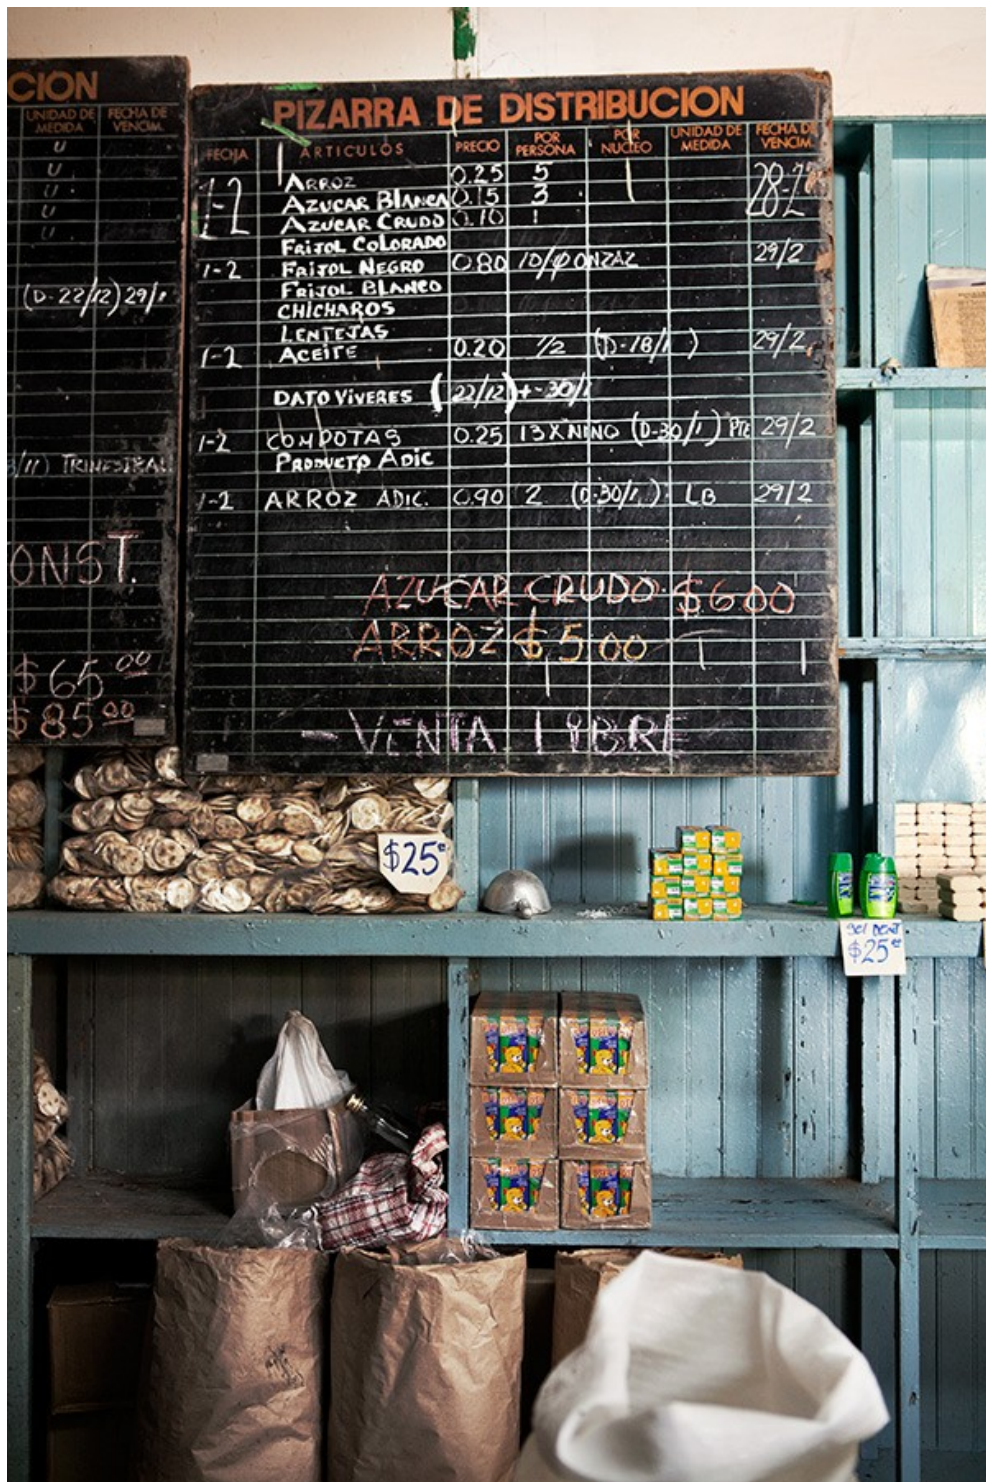 CION
UNIDAD DE MEDIDA FECHA DE VENCIM.
U
U
U
U
U
(D-22/12) 29/1
/11) TRIMESTRAL
ONST.
$65.00
$85.00
PIZARRA DE DISTRIBUCION
FECHA ARTICULOS PRECIO POR PERSONA POR NUCLEO UNIDAD DE MEDIDA FECHA DE VENCIM.
1-2 ARROZ 0.25 5 28-2
AZUCAR BLANCA 0.15 3
AZUCAR CRUDO 0.10 1
FRIJOL COLORADO
1-2 FRIJOL NEGRO 0.80 10/ ONZAZ 29/2
FRIJOL BLANCO
CHICHAROS
LENTEJAS
1-2 ACEITE 0.20 1/2 (D-18/1) 29/2
DATO VIVERES (22/12) +-30/1
1-2 COMPOTAS 0.25 13XNINO (D-30/1) PTE 29/2
PRODUCTO ADIC
1-2 ARROZ ADIC. 0.90 2 (D-30/1) LB 29/2
AZUCAR CRUDO $6 00
ARROZ $5 00
-VENTA LIBRE
$25
gel DENT
$25